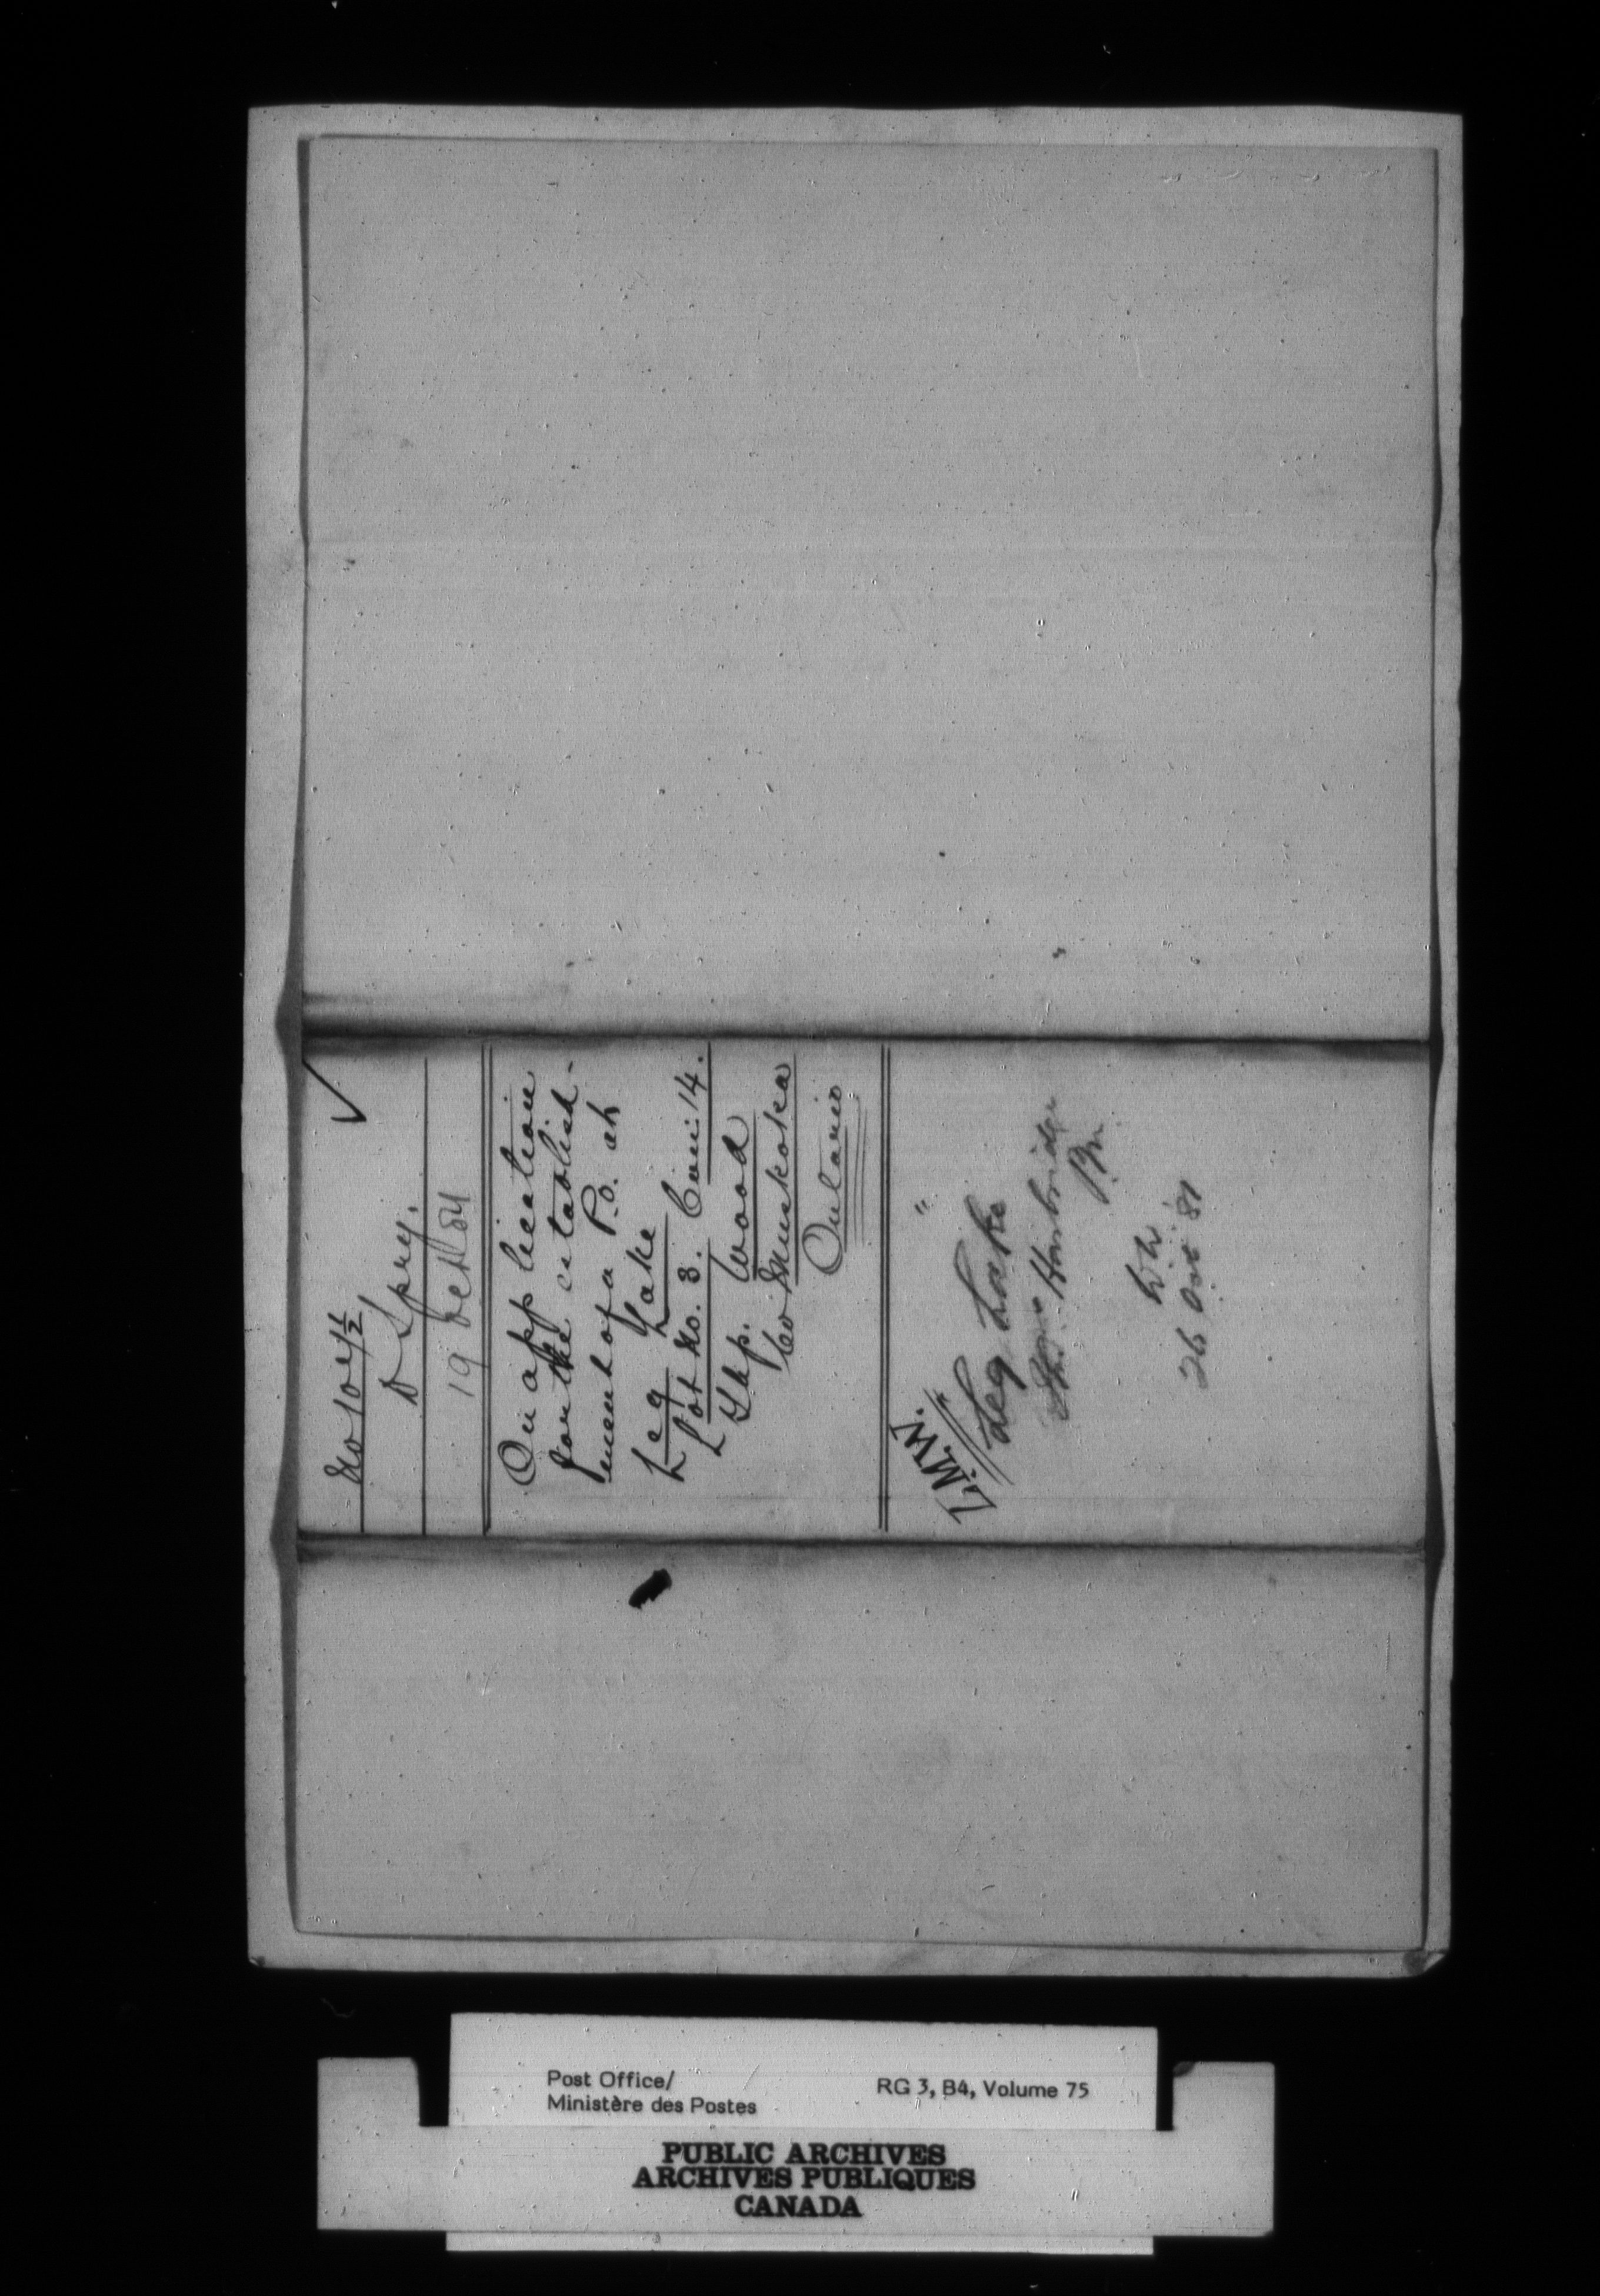 ✓
D Spry.
19 Oct 81
On application
for the establish-
ment of a P.O. at
Leg Lake
Lot No. 8. Con: 14.
Tp. Wood
Co Muskoka
Ontario
"
L.M.W.
Leg Lake
P.M.
26 Oct 81
Post Office/
Ministère des Postes
RG 3, B4, Volume 75
PUBLIC ARCHIVES
ARCHIVES PUBLIQUES
CANADA